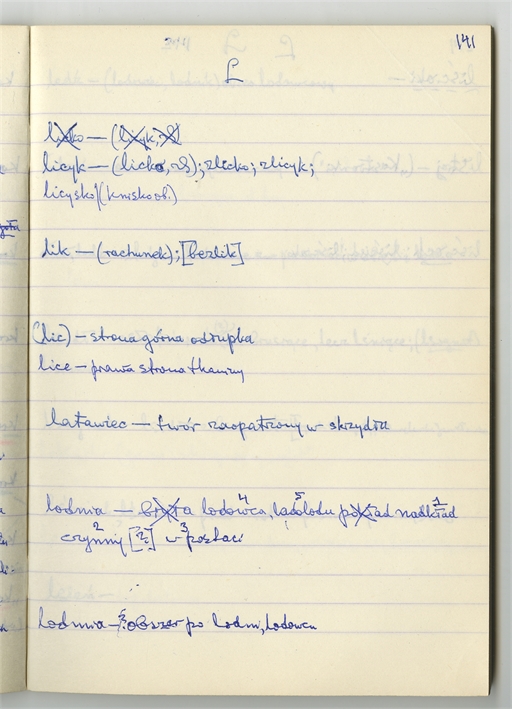 141
L
licko — (licyk,
licyk — (licko, ); zlicko; zlicyk;
licysko/(knisko ob.)
lik — (rachunek); [bezlik]
(lic) — strona górna odrupka
lice — prawa strona tkaniny
latawiec — twór zaopatrzony w skrzydła
lodnia — bryła lodowca, lądolodu pokład nadkład
czynny [2] w postaci
Lodnia — obszar po lodni, Lodowcu